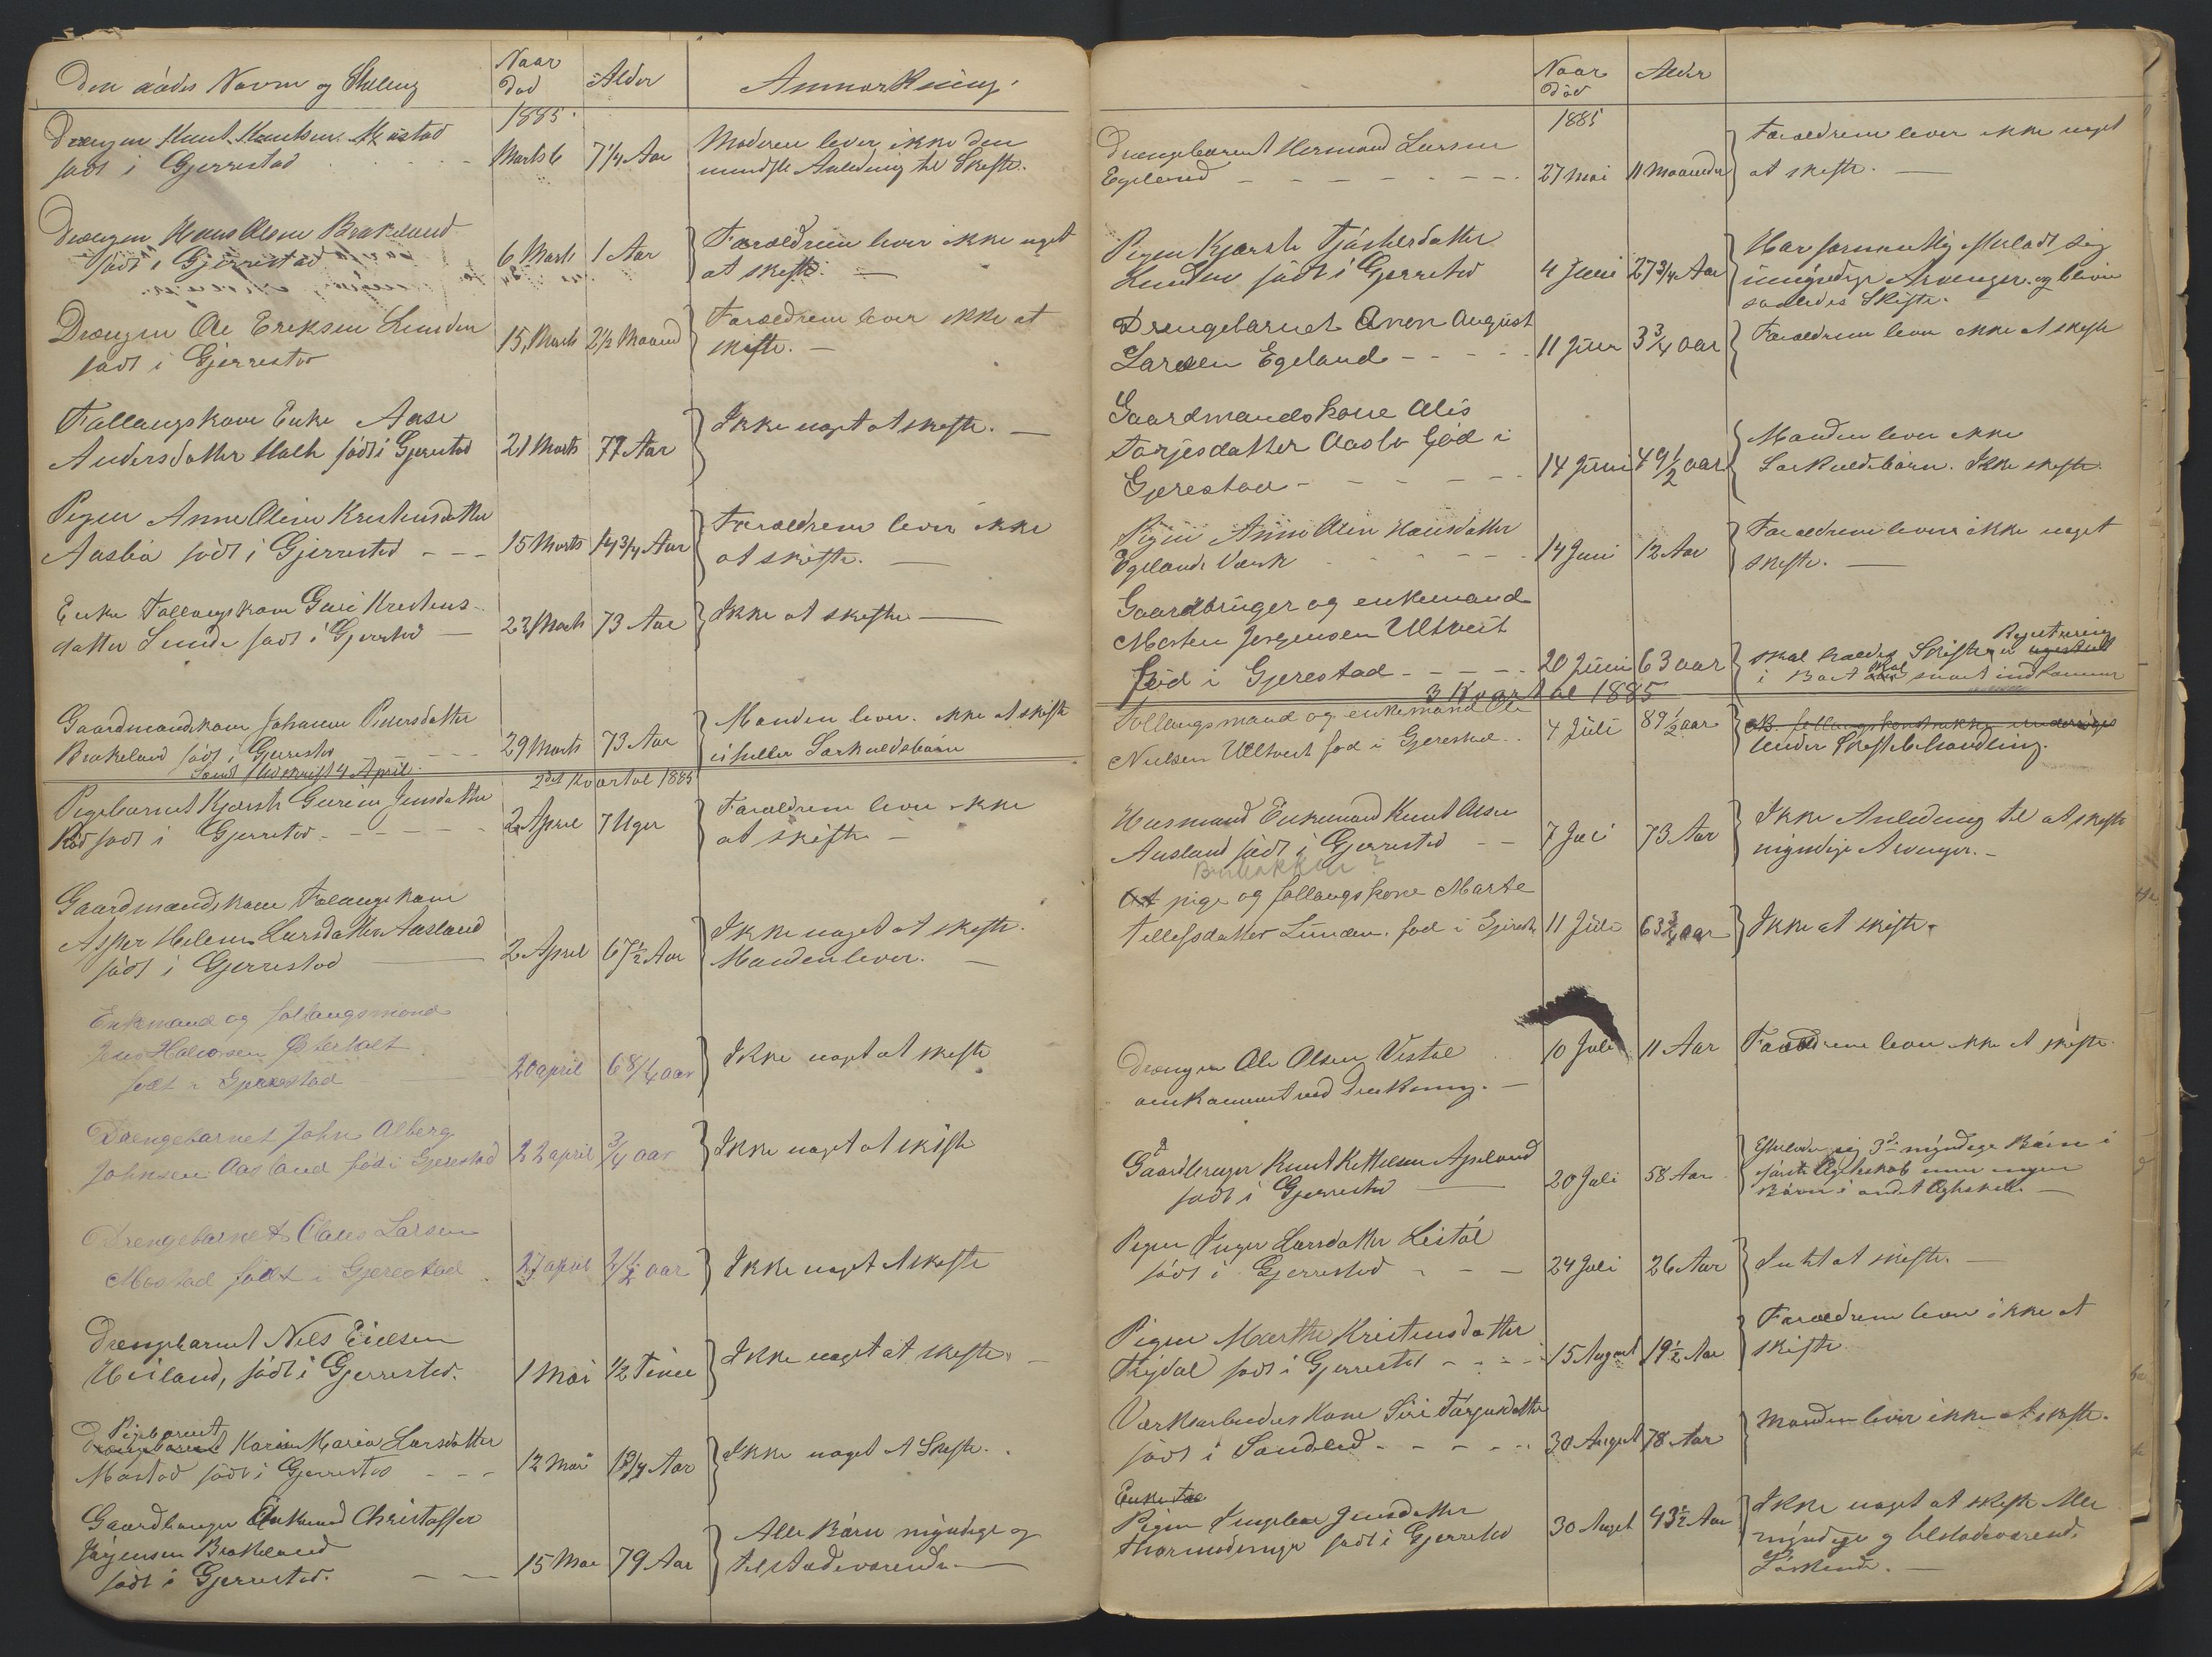 Den dødes Navn og Stilling
Naar
Død
Alder
Anmærkning
1885
Drengen Knut Knutsen Mostad
født i Gjerrestad
Marts 6
7 1/4 Aar
Moderen lever ikke den
mindste Anledning til Skifte.
Drengen Hans Olsen Brakeland
født i Gjerrestad
6 Marts
1 Aar
Forældrene lever ikke noget
at skifte.
Drengen Ole Eriksen Lunden
født i Gjerrestad
15 Marts
2 1/2 Maaned
Forældrene lever ikke at
skifte.
Follaugskone Enke Aase
Andersdatter Holte født i Gjerrestad
21 Marts
77 Aar
Ikke noget at skifte.
Pigen Anne Oline Kristensdatter
Aasbø født i Gjerrestad
15 Marts
14 3/4 Aar
Forældrene lever ikke
at skifte.
Enke Follaugskone Guri Kristens-
datter Sunde født i Gjerrestad
23 Marts
73 Aar
Ikke at skifte
Gaardmandskone Johanne Pedersdatter
Brakeland født i Gjerrestad
29 Marts
73 Aar
Manden lever. ikke at skifte
ei heller Særkuldsbørn
Sendt Udskrift 4 April
2det Kvartal 1885
Pigebarnet Kjersti Gurine Jensdatter
Rød født i Gjerrestad
2 April
7 Uger
Forældrene lever ikke
at skifte
Gaardmandskone Folaugskone
Asper Helene Larsdatter Aasland
født i Gjerrestad
2 April
67 1/2 Aar
Ikke noget at skifte.
Manden lever.
Enkemand og follaugsmand
Jens Halvorsen Østerholt
født i Gjerrestad
20 april
68 1/4 aar
Ikke noget at skifte
Drengebarnet John Alberg
Johnsen Aasland født i Gjerestad
22 april
3/4 aar
Ikke noget at skifte
Drengebarnet Claus Larsen
Mostad født i Gjerestad
27 april
2 1/2 aar
Ikke noget at skifte
Drengebarnet Nils Eielsen
Høiland, født i Gjerrestad.
1 Mai
1/2 Time
Ikke noget at skifte
Pigebarnet
Drengebarnet Karen Maria Larsdatter
Mostad født i Gjerrestad
12 Mai
1 3/4 Aar
Ikke noget at Skifte.
Gaardbruger Enkemand Christoffer
Jørgensen Brakeland
født i Gjerrestad.
15 Mai
79 Aar
Alle Børn myndige og
tilstadeværende.
Naar
Død
Alder
1885
Drengebarnet Hermand Larsen
Egeland
27 Mai
11 Maaneder
Forældrene lever ikke noget
at skifte.
Pigen Kjersti Tjøstelsdatter
Lunden født i Gjerrestad
4 Juni
27 3/4 Aar
Har formentlig efterladt sig
umyndige Arvinger. og bliver
saaledes Skifte.
Drengebarnet Anen August
Larsen Egeland
11 Juni
3 3/4 aar
Forældrene lever ikke at skifte
Gaardmandskone Alis
Torjesdatter Aasbø fød i
Gjerestad
14 Juni
49 1/2 aar
Manden lever ikke
Særkuldsbørn. Ikke skifte.
Pigen Anne Olin Hansdatter
Egelands Værk
14 Juni
12 Aar
Forældrene lever ikke noget
skifte.
Gaardbruger og enkemand
Morten Jørgensen Ultveit
fød i Gjerestad
20 Juni
63 aar
Registrering
skal holdes Skifte
i Boet skal snart indkomme
3 Kvartal 1885
Follaugsmand og enkemand Ole
Nielsen Ultveit fød i Gjerestad
4 Juli
89 1/2 aar
under Skiftebehandling.
Husmand Enkemand Knut Olsen
Aasland født i Gjerrestad
7 Juli
73 Aar
Ikke Anledning til at skifte
myndige Arvinger.
pige og follaugskone Marte
Tellefsdatter Lunden. fød i Gjerest
11 Juli
63 3/4 aar
Ikke at skifte.
Drengen Ole Olsen Vestøl
omkommet ved Drukning.
10 Juli
11 Aar
Forældrene lever ikke at skifte
Gaardbruger Knut Kittelsen Apeland
født i Gjerrestad
20 Juli
58 Aar
Efterlader sig 3de myndige Børn i
første Ægteskab men ingen
Børn i andet Ægteskab
Pigen Inger Larsdatter Lestøl
født i Gjerrestad
24 Juli
26 Aar
Intet at skifte.
Pigen Marthe Kristensdatter
Trydal født i Gjerrestad
15 August
19 1/2 Aar
Forældrene lever ikke at
skifte
Værksarbeider Kone Siri Torjusdatter
født i Søndeled
30 August
78 Aar
Manden lever ikke at skifte.
Enke
Pigen Ingeborg Jensdatter
født i Gjerrestad
30 August
43 1/2 Aar
Ikke noget at skifte Alle
myndige og tilstadeværende
Søskende.